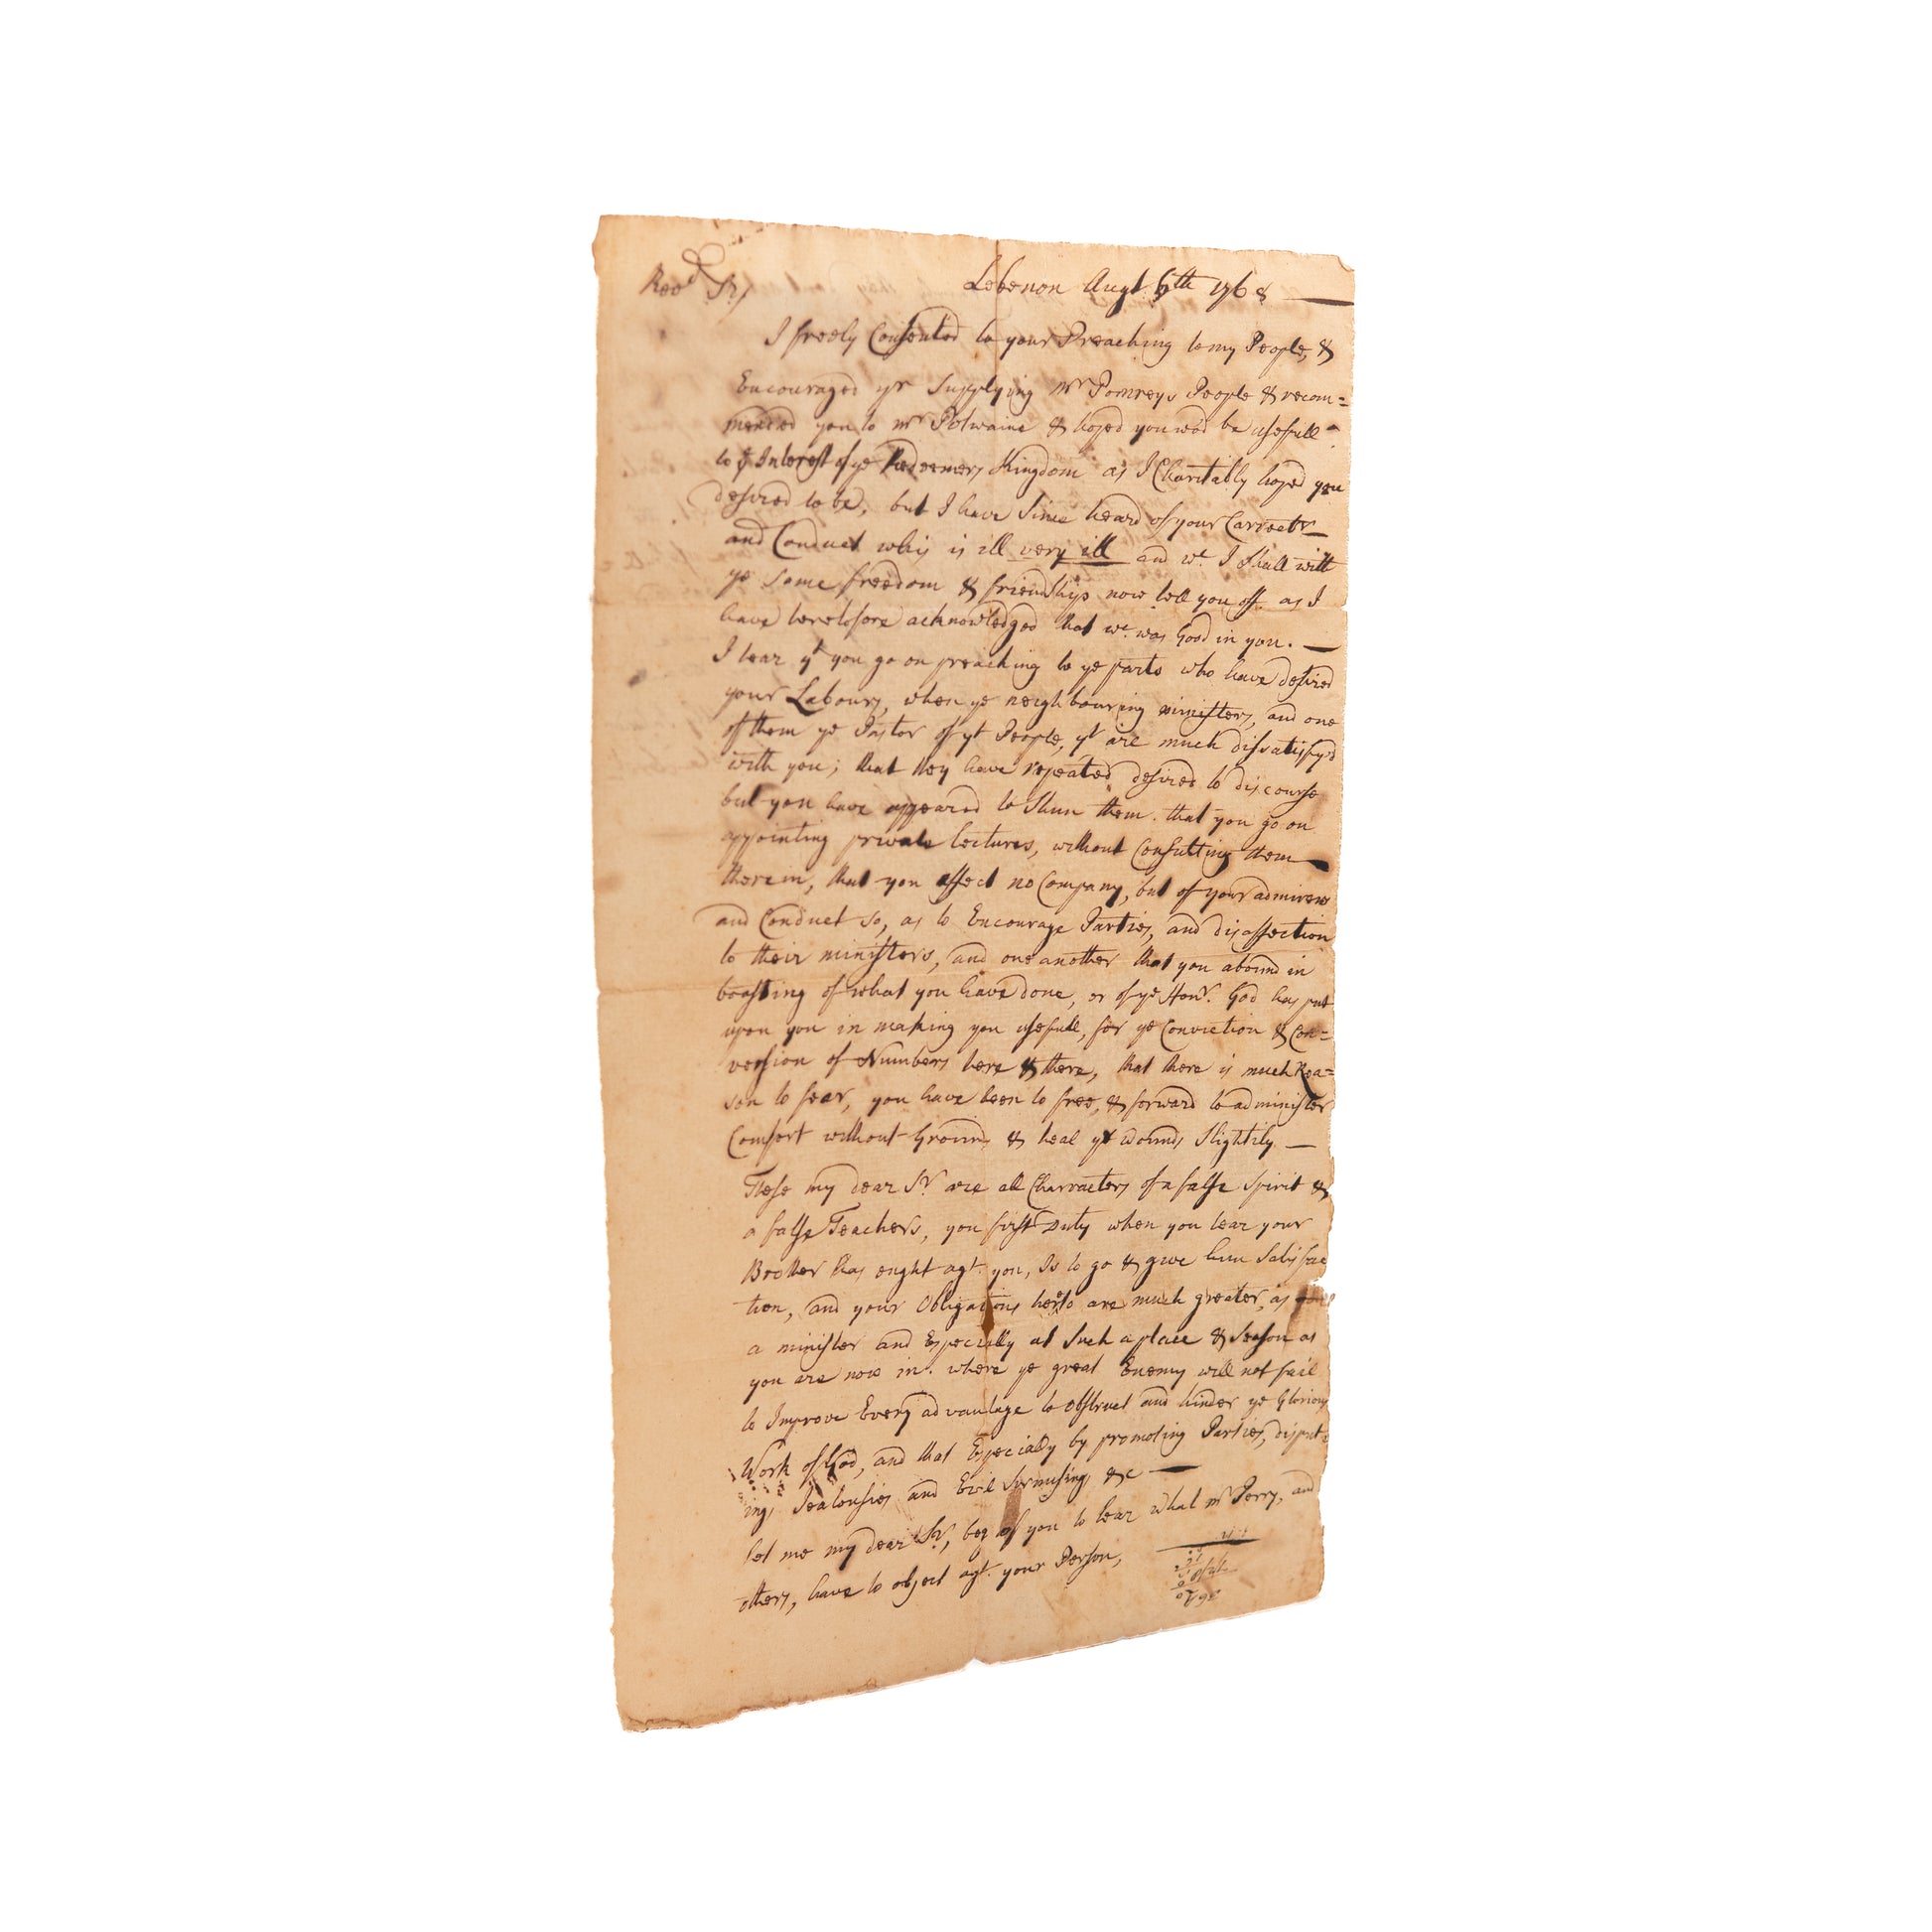 Revd Sr,
Lebenon Augt. 6th 1768
I freely Consented to your Preaching to my People, &
Encouraged yr Supplying mr Pomreys People & recom=
mended you to mr Potwaine & hoped you wod be usefull
to ye Interest of ye Redeemers Kingdom as I Charitably hoped you
desired to be, but I have Since heard of your Carrectr
and Conduct whis is ill very ill and wt. I Shall with
ye Same freedom & friendship now tell you off as I
have heretofore acknowledged that wt. was Good in you.
I hear yt you go on preaching to ye parts who have desired
your Labours, when ye neighbouring ministers, and one
of them ye Pastor of yt People, yt are much dissatisfyd
with you; that they have repeated desired to discourse
but you have appeared to Shun them. that you go on
appointing private lectures, without Consulting them
therein, that you affect no Company, but of your admirers
and Conduct so, as to Encourage Parties, and disaffection
to their ministers, and one another that you abound in
boasting of what you have done, or of ye Honr. God has put
upon you in making you usefull, for ye Conviction & Con=
version of Numbers here & there, that there is much Rea=
son to fear, you have been to free, & forward to administer
Comfort without Ground & heal ye wounds Slightily
These my dear Sr are all Charracters of a false Spirit &
a false Teachers, you first Duty when you hear your
Brother has ought agt. you, Is to go & give him Satisfac
tion, and your Obligations hereto are much greater, as
a minister and Especially at Such a place & Season as
you are now in. where ye great Enemy will not fail
to Improve Every advantage to obstruct and hinder ye Glorious
Work of God, and that Especially by promoting Parties, disput=
ing, Jealousies and Evil Surmising &c
let me my dear Sr, beg of you to hear what mr Perry, and
others, have to object agt. your Person,